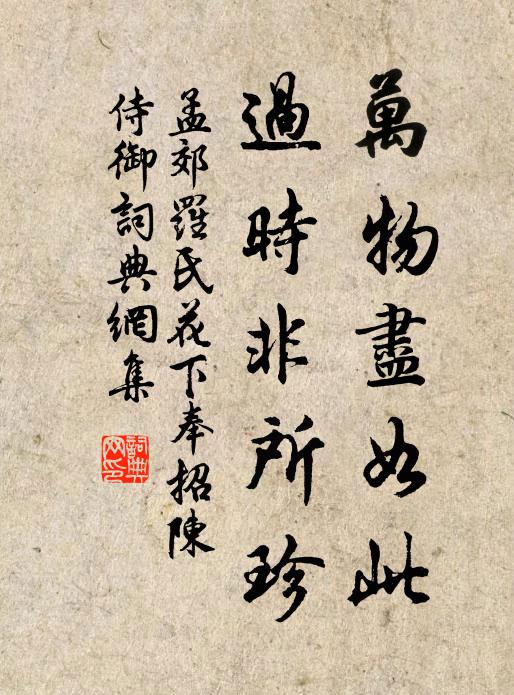 萬物盡如此
過時非所珍
孟郊羅氏花下奉招陳
侍御詞典網集
詞典
网印